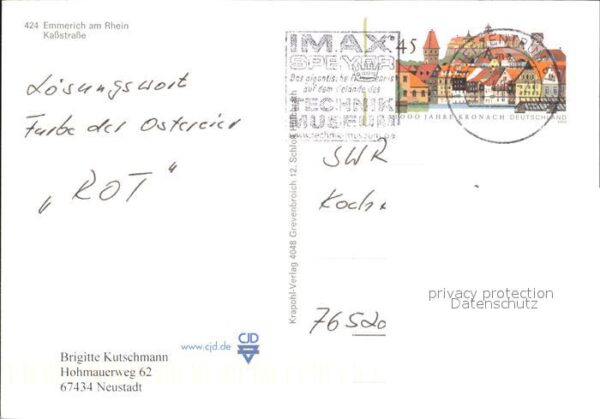 424 Emmerich am Rhein
Kaßstraße
Lösungswort
Farbe der Ostereier
„ROT"
IMAX
SPEYER
auf dem Gelände des
TECHNIK
MUSEUM
www.technik-museum.de
45
1000 JAHRE KRONACH DEUTSCHLAND
Krapohl-Verlag 4048 Grevenbroich 12, Schloß Hülchrath
SWR
76520
privacy protection
www.cjd.de
CJD
Brigitte Kutschmann
Hohmauerweg 62
67434 Neustadt